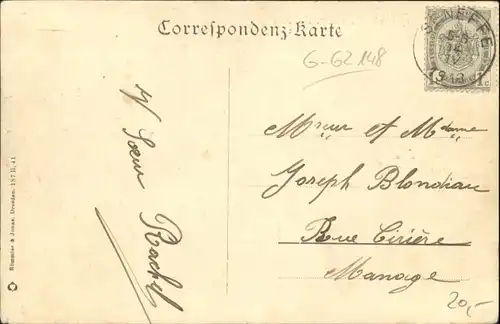 Correspondenz-Karte
G-62 148
SENEFFE
1913
1c
V Sœur
Rachel
Mr eur et Mdame
Joseph Blondiau
Rue Cirière
Manage
20,-
Römmler & Jonas, Dresden. 187 B. 41